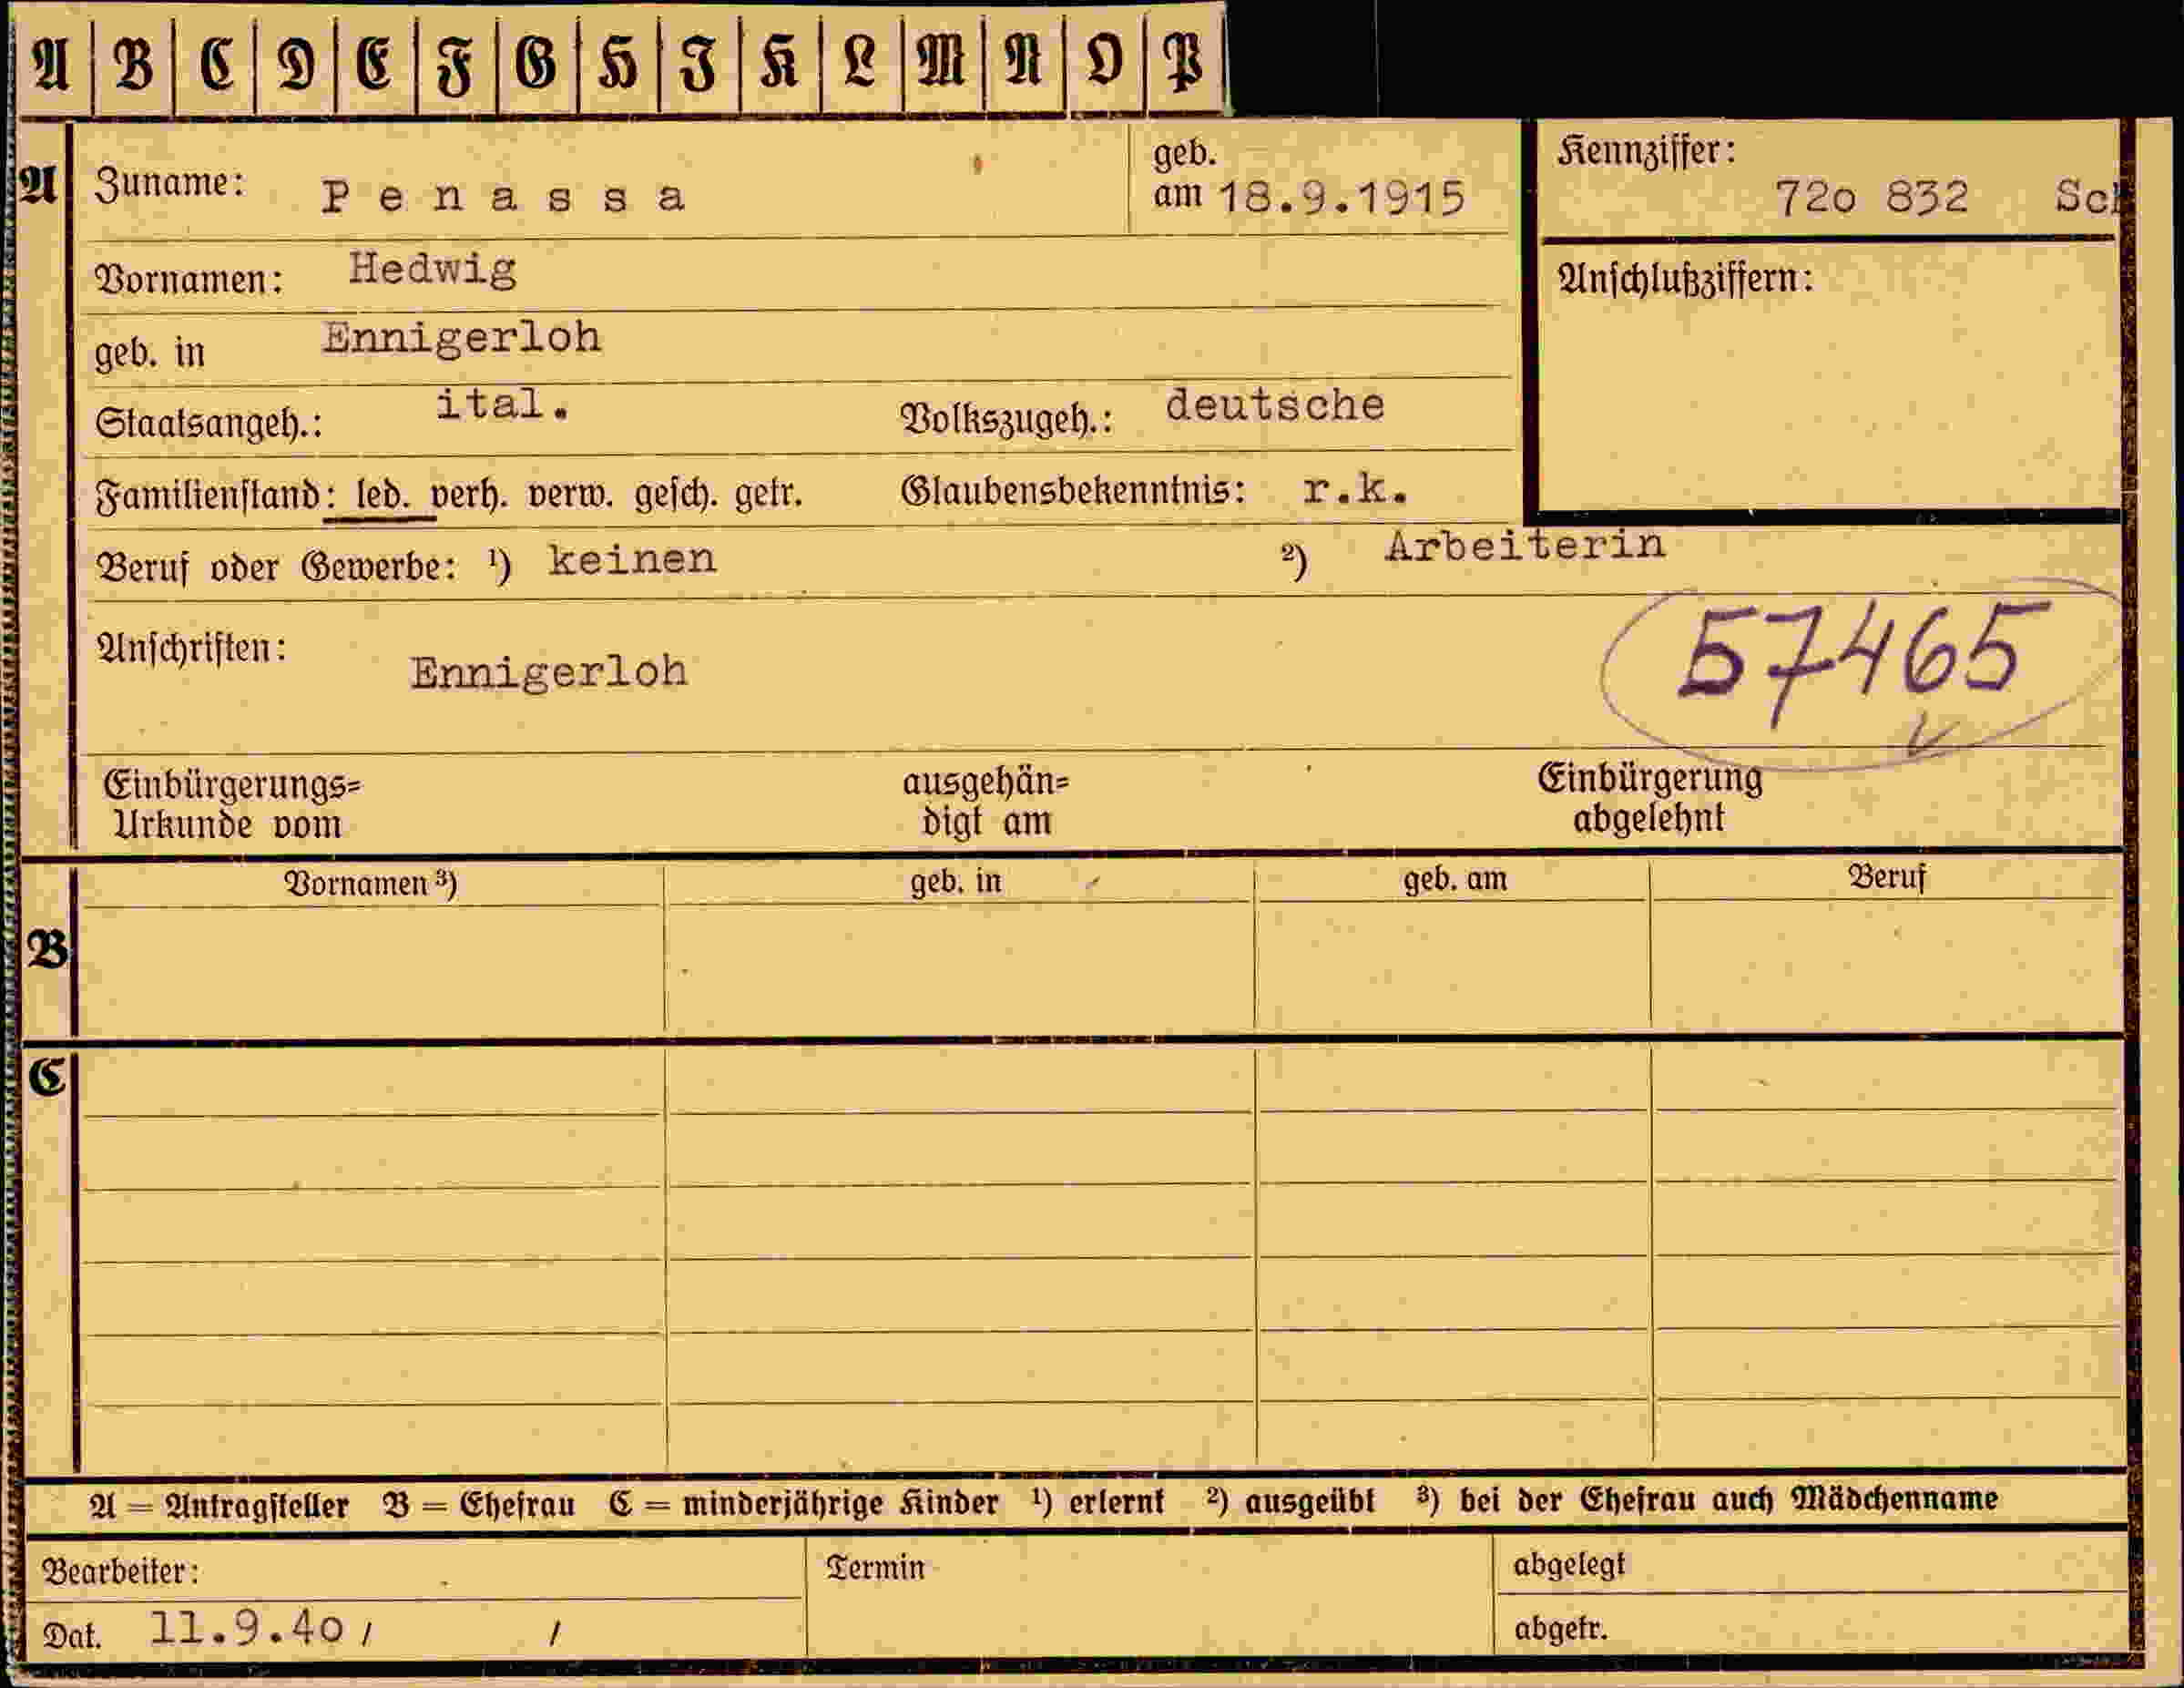 A B C D E F G H I K L M N O P
A Zuname: Penassa geb. am 18.9.1915 Kennziffer: 72o 832 Sch
Vornamen: Hedwig Anschlußziffern:
geb. in Ennigerloh
Staatsangeh.: ital. Volkszugeh.: deutsche
Familienstand: led. verh. verw. gesch. getr. Glaubensbekenntnis: r.k.
Beruf oder Gewerbe: ¹) keinen ²) Arbeiterin
Anschriften: Ennigerloh 57465
Einbürgerungs= Urkunde vom ausgehän= digt am Einbürgerung abgelehnt
Vornamen ³) geb. in geb. am Beruf
B
C
A = Antragsteller B = Ehefrau C = minderjährige Kinder ¹) erlernt ²) ausgeübt ³) bei der Ehefrau auch Mädchenname
Bearbeiter: Termin abgelegt
Dat. 11.9.4o / / abgetr.